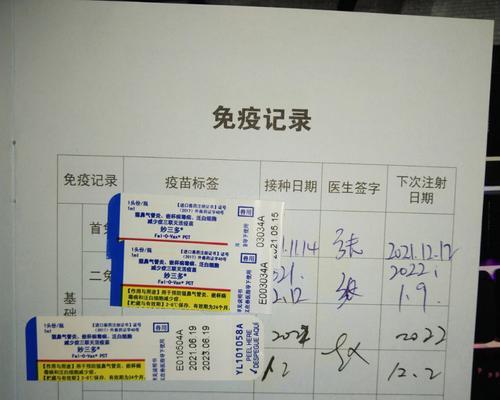 免疫记录
免疫记录 疫苗标签 接种日期 医生签字 下次注射日期
首免
1头份/瓶
1ml
【进口兽药注册证书】证号
(2017) 外兽药证字40号
兽用
猫鼻气管炎、嵌杯病毒病、泛白细胞
减少症三联灭活疫苗
妙三多®
Fel-O-Vax® PCT
03034A
2021.06.15
.11.14
2021.12.12
二免
猫鼻气管炎、嵌杯病毒病、泛白细胞
减少症三联灭活疫苗
妙三多®
Fel-O-Vax® PCT
兽用
E003034A
021.
12.12
2022.
1.9.
【作用与用途】用于预防猫鼻气管炎、嵌杯病
毒病和泛白细胞减少症。
【贮藏与有效期】2-8℃保存，有效期为24个月。
基础
1头份/瓶
1ml
【进口兽药注册证书】证号
(2017) 外兽药证字40号
兽用
猫鼻气管炎、嵌杯病毒病、泛白细胞
减少症三联灭活疫苗
妙三多®
Fel-O-Vax® PCT
【作用与用途】用于预防猫鼻气管炎、嵌杯病
毒病和泛白细胞减少症。
【贮藏与有效期】2-8℃保存，有效期为24个月。
E010504A
2021.06.19
2023.06.19
YL101058A
PEEL HERE
DESPEGUE AQUI
202
1.2
2022
12.2